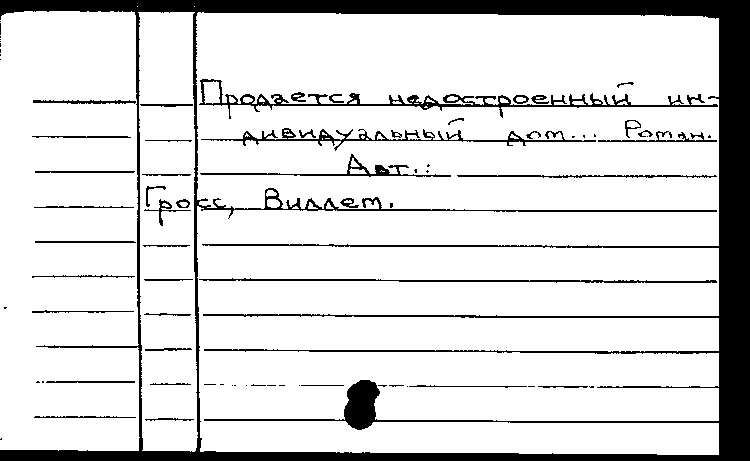 Продается недостроенный ин-
дивидуальный дом... Роман.
Авт.:
Гросс, Виллем.